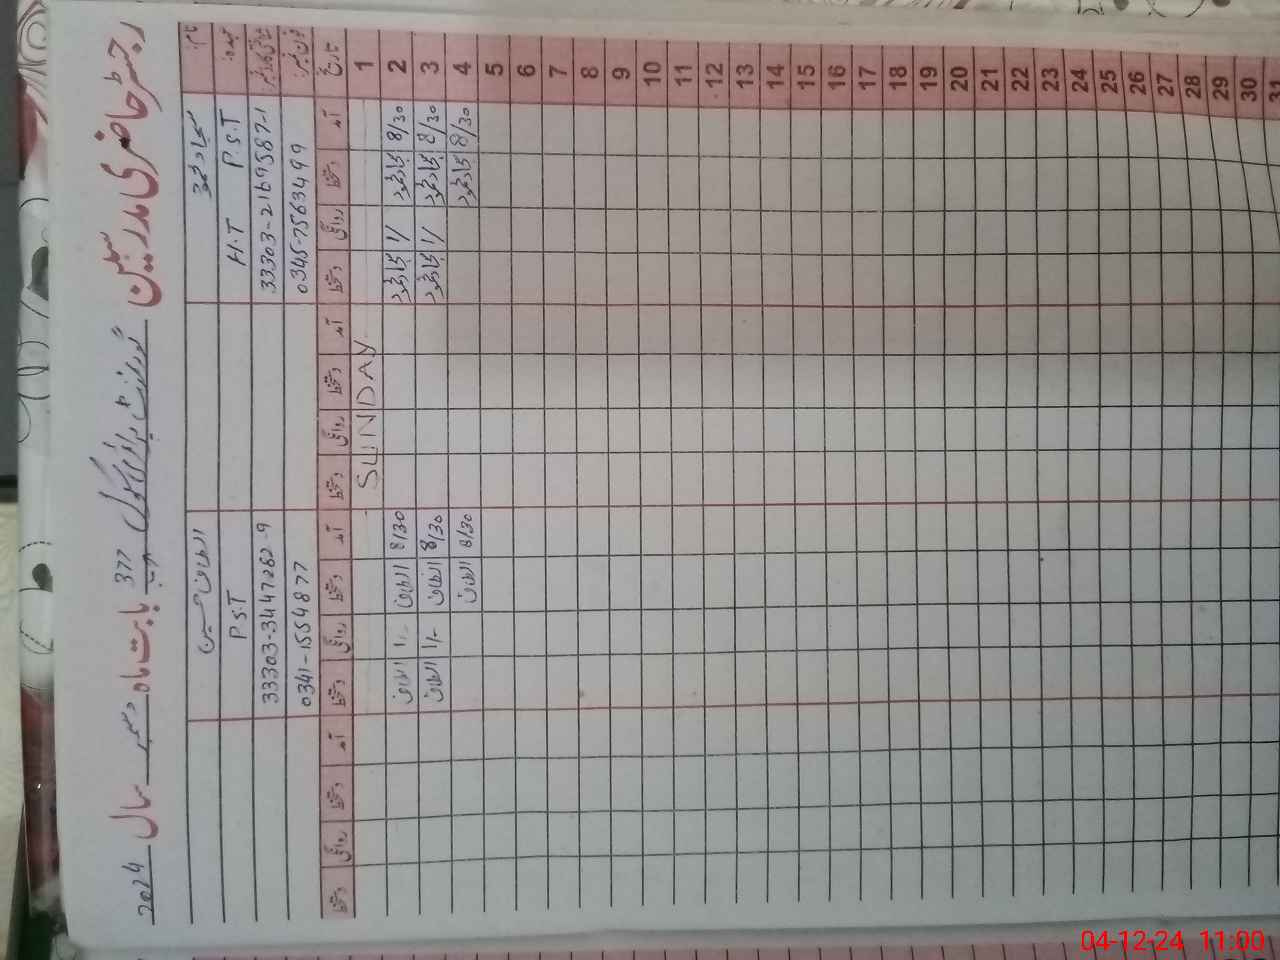 رجسٹر حاضری مدرسین گورنمنٹ پرائمری سکول 377 گ ب بابت ماہ دسمبر سال 2024
نام: سجاد محمود الطاف حسین
عہدہ: H.T P.S.T P.S.T
شناختی کارڈ نمبر 33303-2169587-1 33303-3447262-9
فون نمبر: 0345-7563499 0341-1554877
تاریخ آمد دستخط روانگی دستخط آمد دستخط روانگی دستخط آمد دستخط روانگی دستخط آمد دستخط روانگی دستخط
1 SUNDAY
2 8/30 1/ 8/30 الطاف 1/- الطاف
3 8/30 1/ 8/30 الطاف 1/- الطاف
4 8/30 8/30 الطاف
5
6
7
8
9
10
11
12
13
14
15
16
17
18
19
20
21
22
23
24
25
26
27
28
29
30
31
04-12-24 11:00